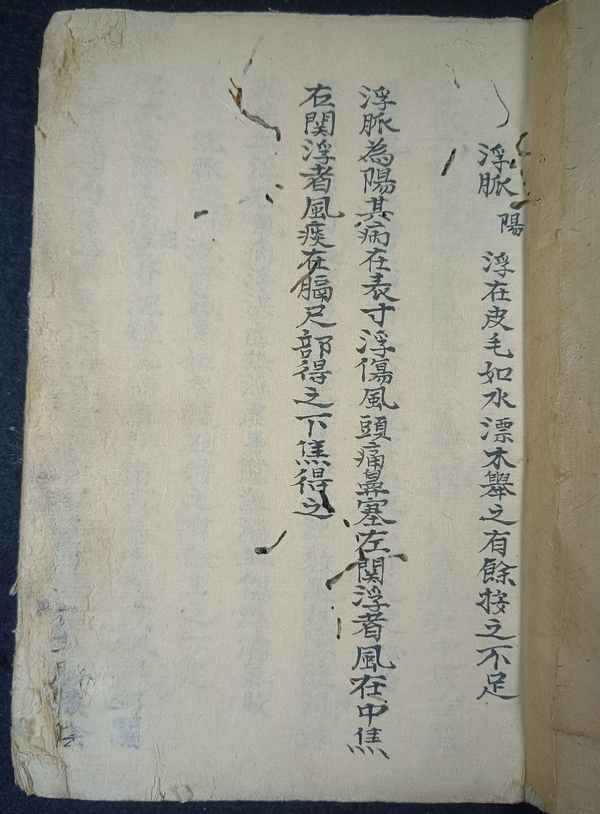 浮脈 陽 浮在皮毛如水漂木舉之有餘按之不足
浮脈為陽其病在表寸浮傷風頭痛鼻塞左関浮者風在中焦
右関浮者風痰在膈尺部得之下焦得之